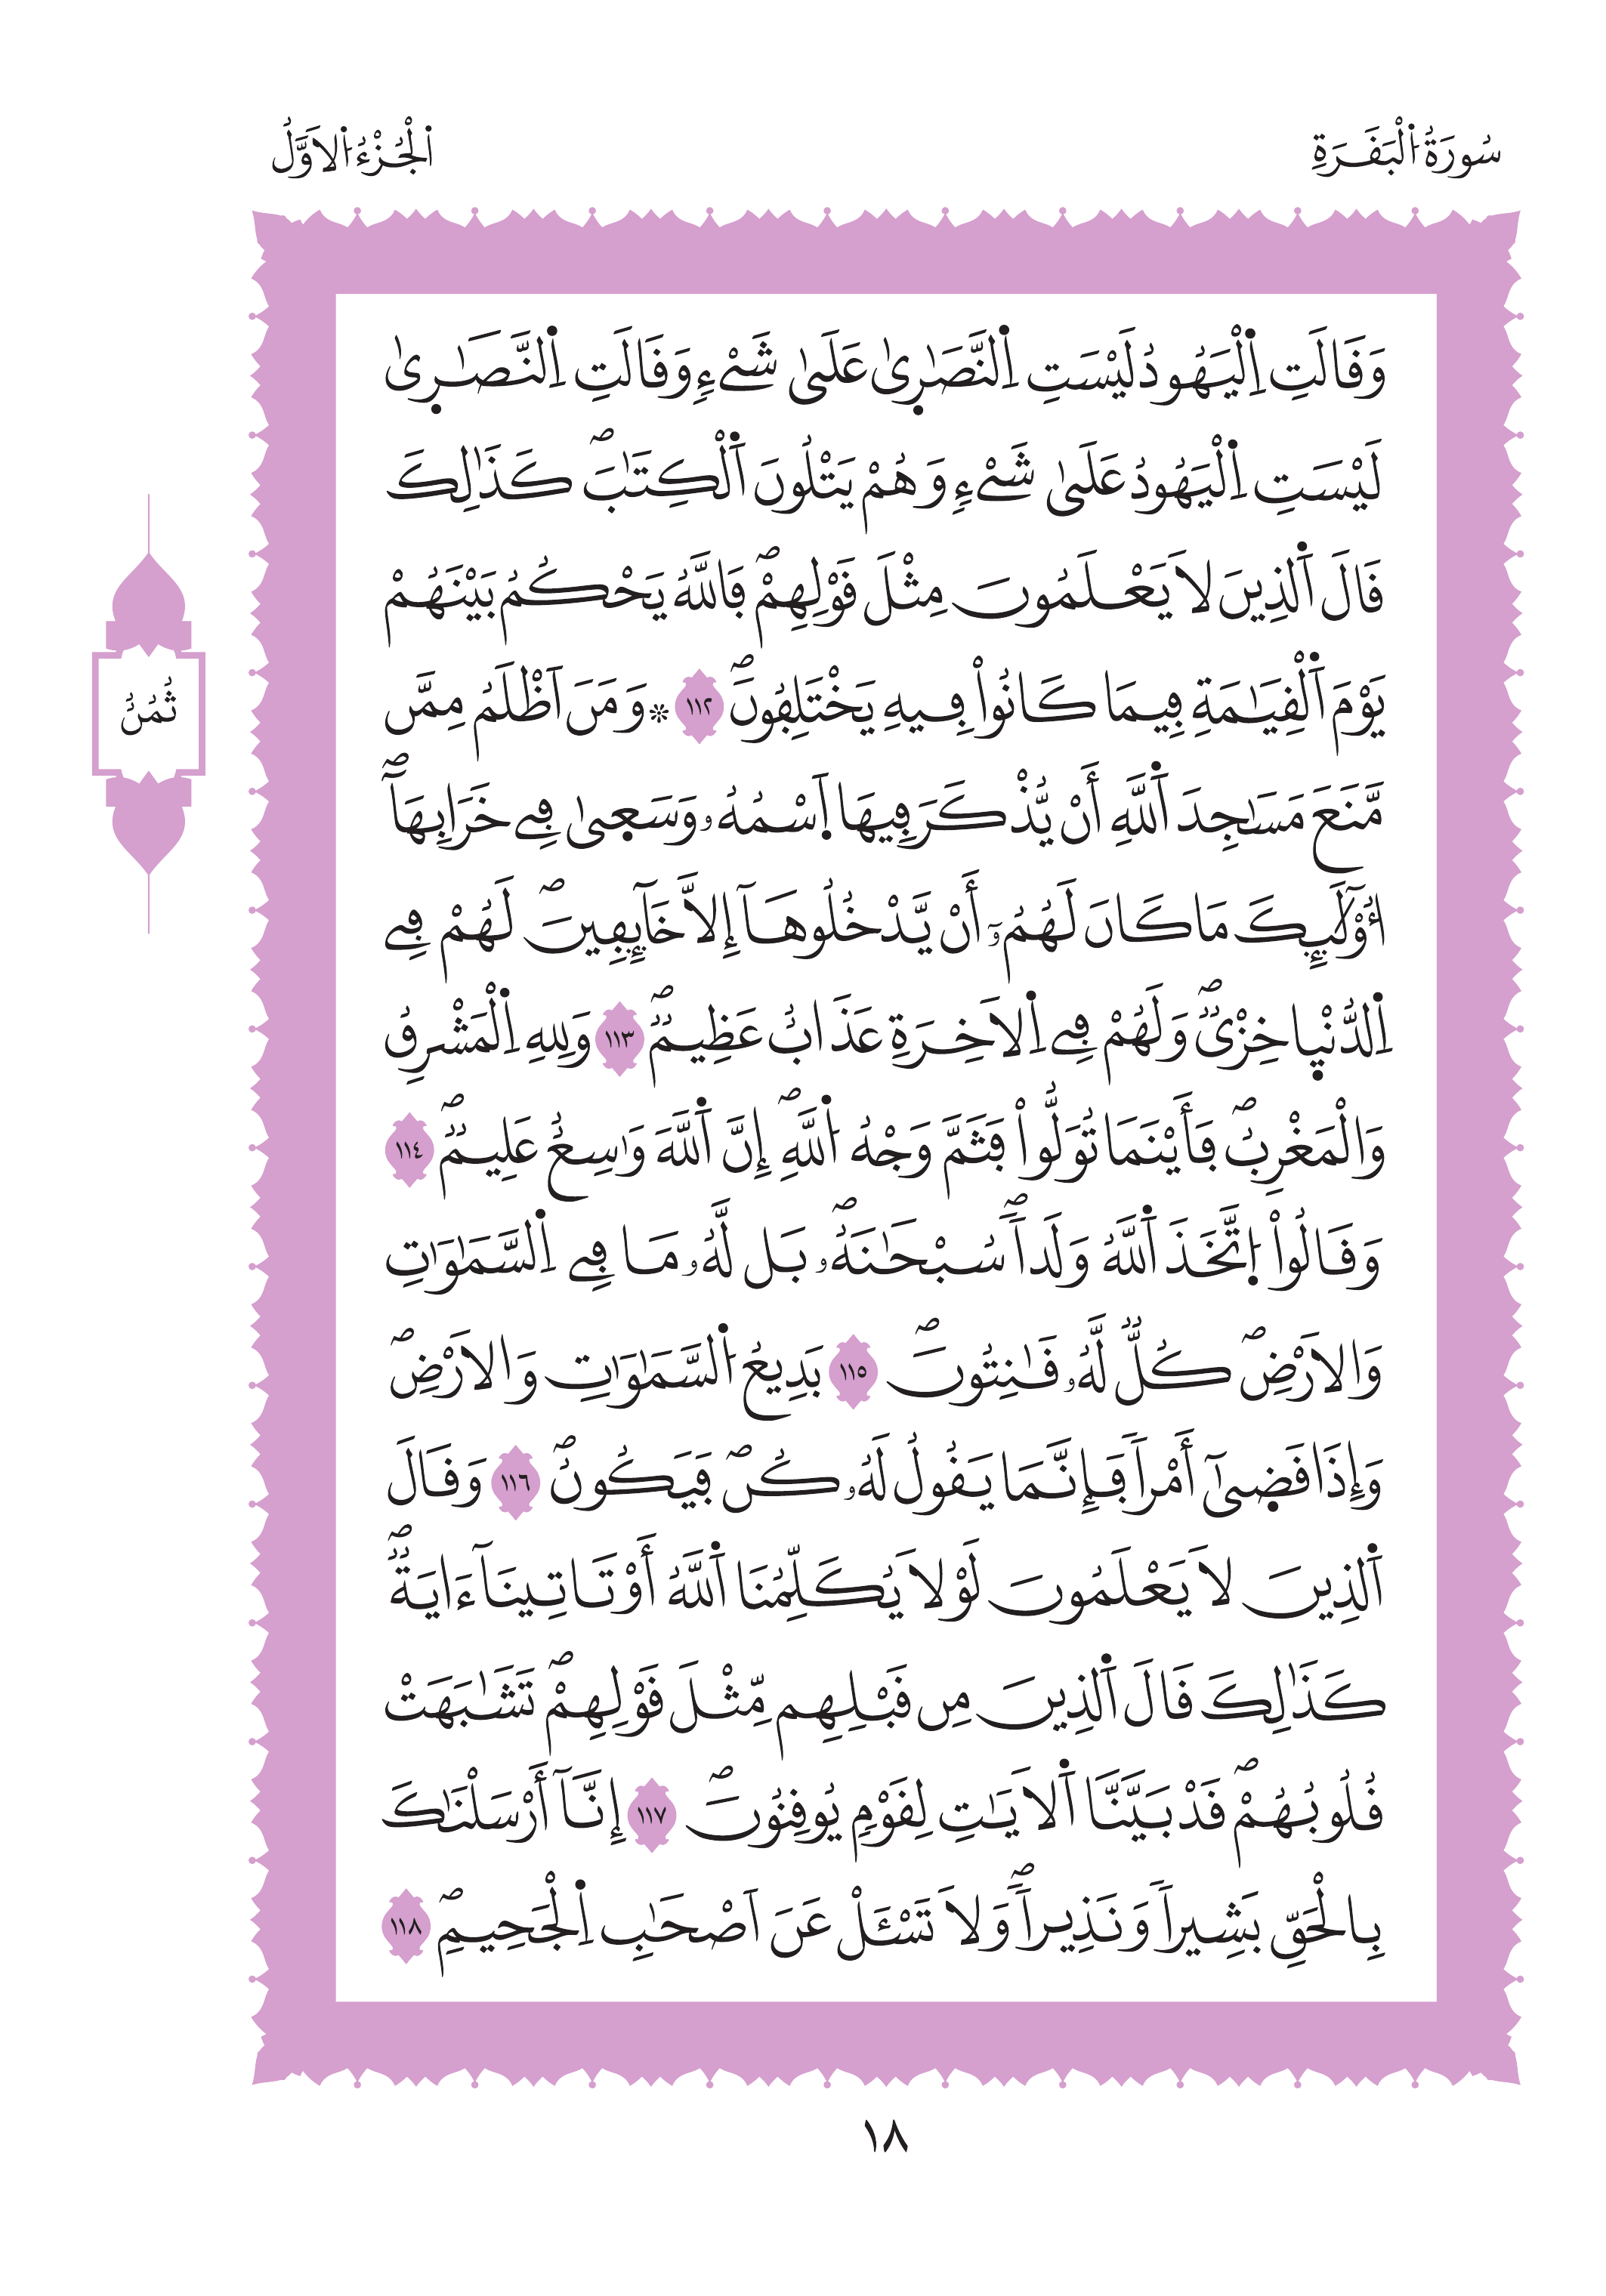 سُورَةُ اُ۬لْبَقَرَةِ
اَ۬لْجُزْءُ اُ۬لَاوَّلُ
وَقَالَتِ اِ۬لْيَهُودُ لَيْسَتِ اِ۬لنَّصَٰرٜيٰ عَلَيٰ شَےْءٖ وَقَالَتِ اِ۬لنَّصَٰرٜيٰ
لَيْسَتِ اِ۬لْيَهُودُ عَلَيٰ شَےْءٖ وَهُمْ يَتْلُونَ اَ۬لْكِتَٰبَۖ كَذَٰلِكَ
قَالَ اَ۬لذِينَ لَا يَعْلَمُونَ مِثْلَ قَوْلِهِمْۖ فَاللَّهُ يَحْكُمُ بَيْنَهُمْ
يَوْمَ اَ۬لْقِيَٰمَةِ فِيمَا كَانُواْ فِيهِ يَخْتَلِفُونَۖ ١١٢ ۞وَمَنَ اَظْلَمُ مِمَّن
مَّنَعَ مَسَٰجِدَ اَ۬للَّهِ أَنْ يُّذْكَرَ فِيهَا اَ۪سْمُهُۥ وَسَعٜيٰ فِے خَرَابِهَآۖ
أُوْلَٰٓئِكَ مَا كَانَ لَهُمُۥٓ أَنْ يَّدْخُلُوهَآ إِلَّا خَآئِفِينَۖ لَهُمْ فِے
اِ۬لدُّنْيٜا خِزْيٞۖ وَلَهُمْ فِے اِ۬لَاخِرَةِ عَذَابٌ عَظِيمٞۖ ١١٣ وَلِلهِ اِ۬لْمَشْرِقُ
وَالْمَغْرِبُۖ فَأَيْنَمَا تُوَلُّواْ فَثَمَّ وَجْهُ اُ۬للَّهِۖ إِنَّ اَ۬للَّهَ وَٰسِعٌ عَلِيمٞۖ ١١٤
وَقَالُواْ اُ۪تَّخَذَ اَ۬للَّهُ وَلَداٗۖ سُبْحَٰنَهُۥۖ بَل لَّهُۥ مَا فِے اِ۬لسَّمَٰوَٰتِ
وَالَارْضِۖ كُلّٞ لَّهُۥ قَٰنِتُونَۖ ١١٥ بَدِيعُ اُ۬لسَّمَٰوَٰتِ وَالَارْضِۖ
وَإِذَا قَضٜيٰٓ أَمْراٗ فَإِنَّمَا يَقُولُ لَهُۥ كُنۖ فَيَكُونُۖ ١١٦ وَقَالَ
اَ۬لذِينَ لَا يَعْلَمُونَ لَوْلَا يُكَلِّمُنَا اَ۬للَّهُ أَوْ تَاتِينَآ ءَايَةٞۖ
كَذَٰلِكَ قَالَ اَ۬لذِينَ مِن قَبْلِهِم مِّثْلَ قَوْلِهِمْۖ تَشَٰبَهَتْ
قُلُوبُهُمْۖ قَدْ بَيَّنَّا اَ۬لَايَٰتِ لِقَوْمٖ يُوقِنُونَۖ ١١٧ إِنَّآ أَرْسَلْنَٰكَ
بِالْحَقِّ بَشِيراٗ وَنَذِيراٗۖ وَلَا تَسْـَٔلْ عَنَ اَصْحَٰبِ اِ۬لْجَحِيمِۖ ١١٨
ثُمُنُ
١٨